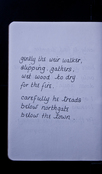 gently the weir walker,
slipping, gathers,
wet wood to dry
for the fire.
carefully he treads
below northgate
below the town.